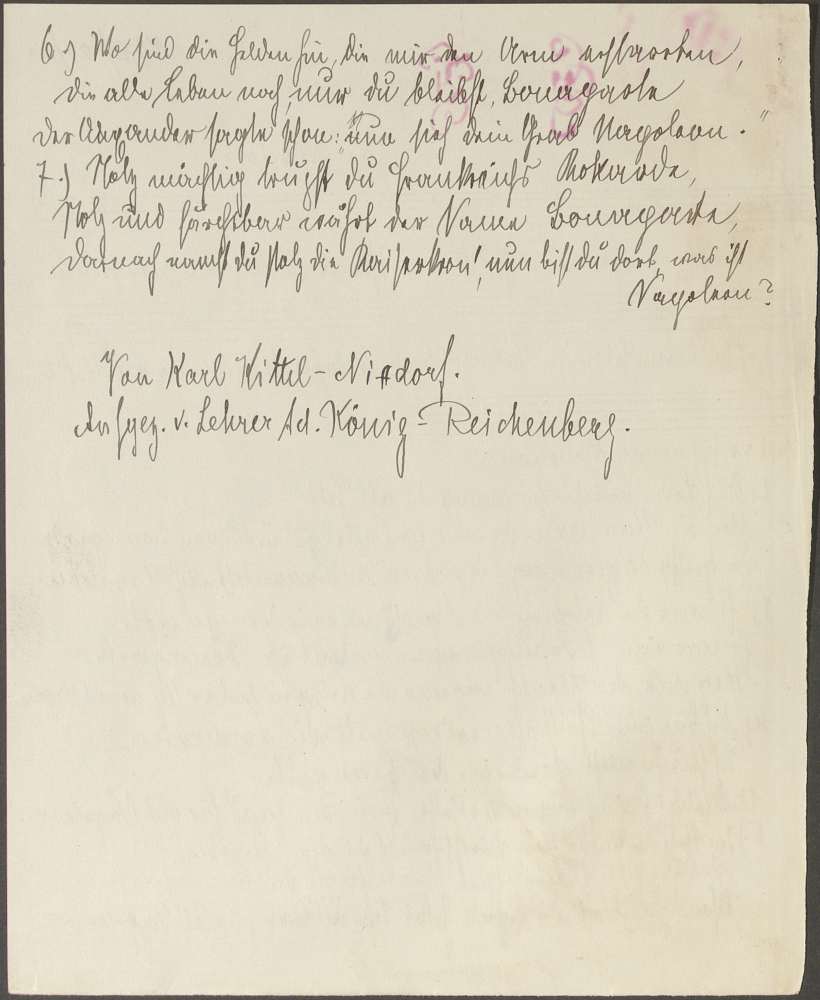 6.) Wo sind die Helden hin, die mir den Arm erstarrten,
die alle leben noch, nur du bleibst, Bonaparte
der Alexander sagte schon: "nun sieh dein Grab Napoleon."
7.) Stolz mächtig trugst du Frankreichs Kokarde,
Stolz und furchtbar währt der Name Bonaparte,
darnach namst du stolz die Kaiserkron', nun bist du dort, was ist
Napoleon?
Von Karl Kittel - Nixdorf.
Aufgez. v. Lehrer Ad. König - Reichenberg.